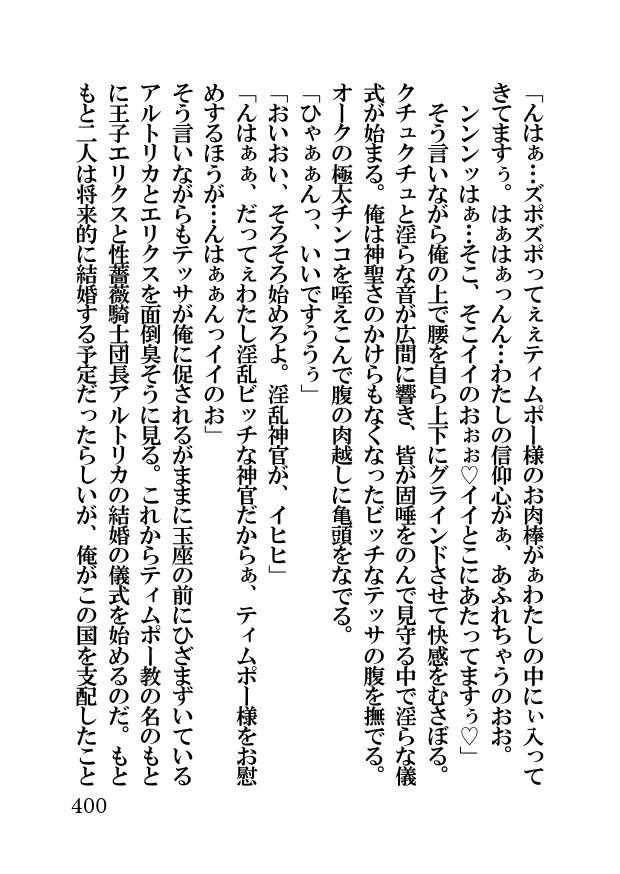 「んはぁ…ズポズポってぇぇティムポー様のお肉棒がぁわたしの中にぃ入って
きてますぅ。はぁはぁっんん…わたしの信仰心がぁ、あふれちゃうのおお。
ンンンッはぁ…そこ、そこイイのおぉぉ♡イイとこにあたってますぅ♡」
そう言いながら俺の上で腰を自ら上下にグラインドさせて快感をむさぼる。
クチュクチュと淫らな音が広間に響き、皆が固唾をのんで見守る中で淫らな儀
式が始まる。俺は神聖さのかけらもなくなったビッチなテッサの腹を撫でる。
オークの極太チンコを咥えこんで腹の肉越しに亀頭をなでる。
「ひゃぁぁんっ、いいですううぅ」
「おいおい、そろそろ始めろよ。淫乱神官が、イヒヒ」
「んはぁぁ、だってぇわたし淫乱ビッチな神官だからぁ、ティムポー様をお慰
めするほうが…んはぁぁんっイイのお」
そう言いながらもテッサが俺に促されるがままに玉座の前にひざまずいている
アルトリカとエリクスを面倒臭そうに見る。これからティムポー教の名のもと
に王子エリクスと性薔薇騎士団長アルトリカの結婚の儀式を始めるのだ。もと
もと二人は将来的に結婚する予定だったらしいが、俺がこの国を支配したこと
400